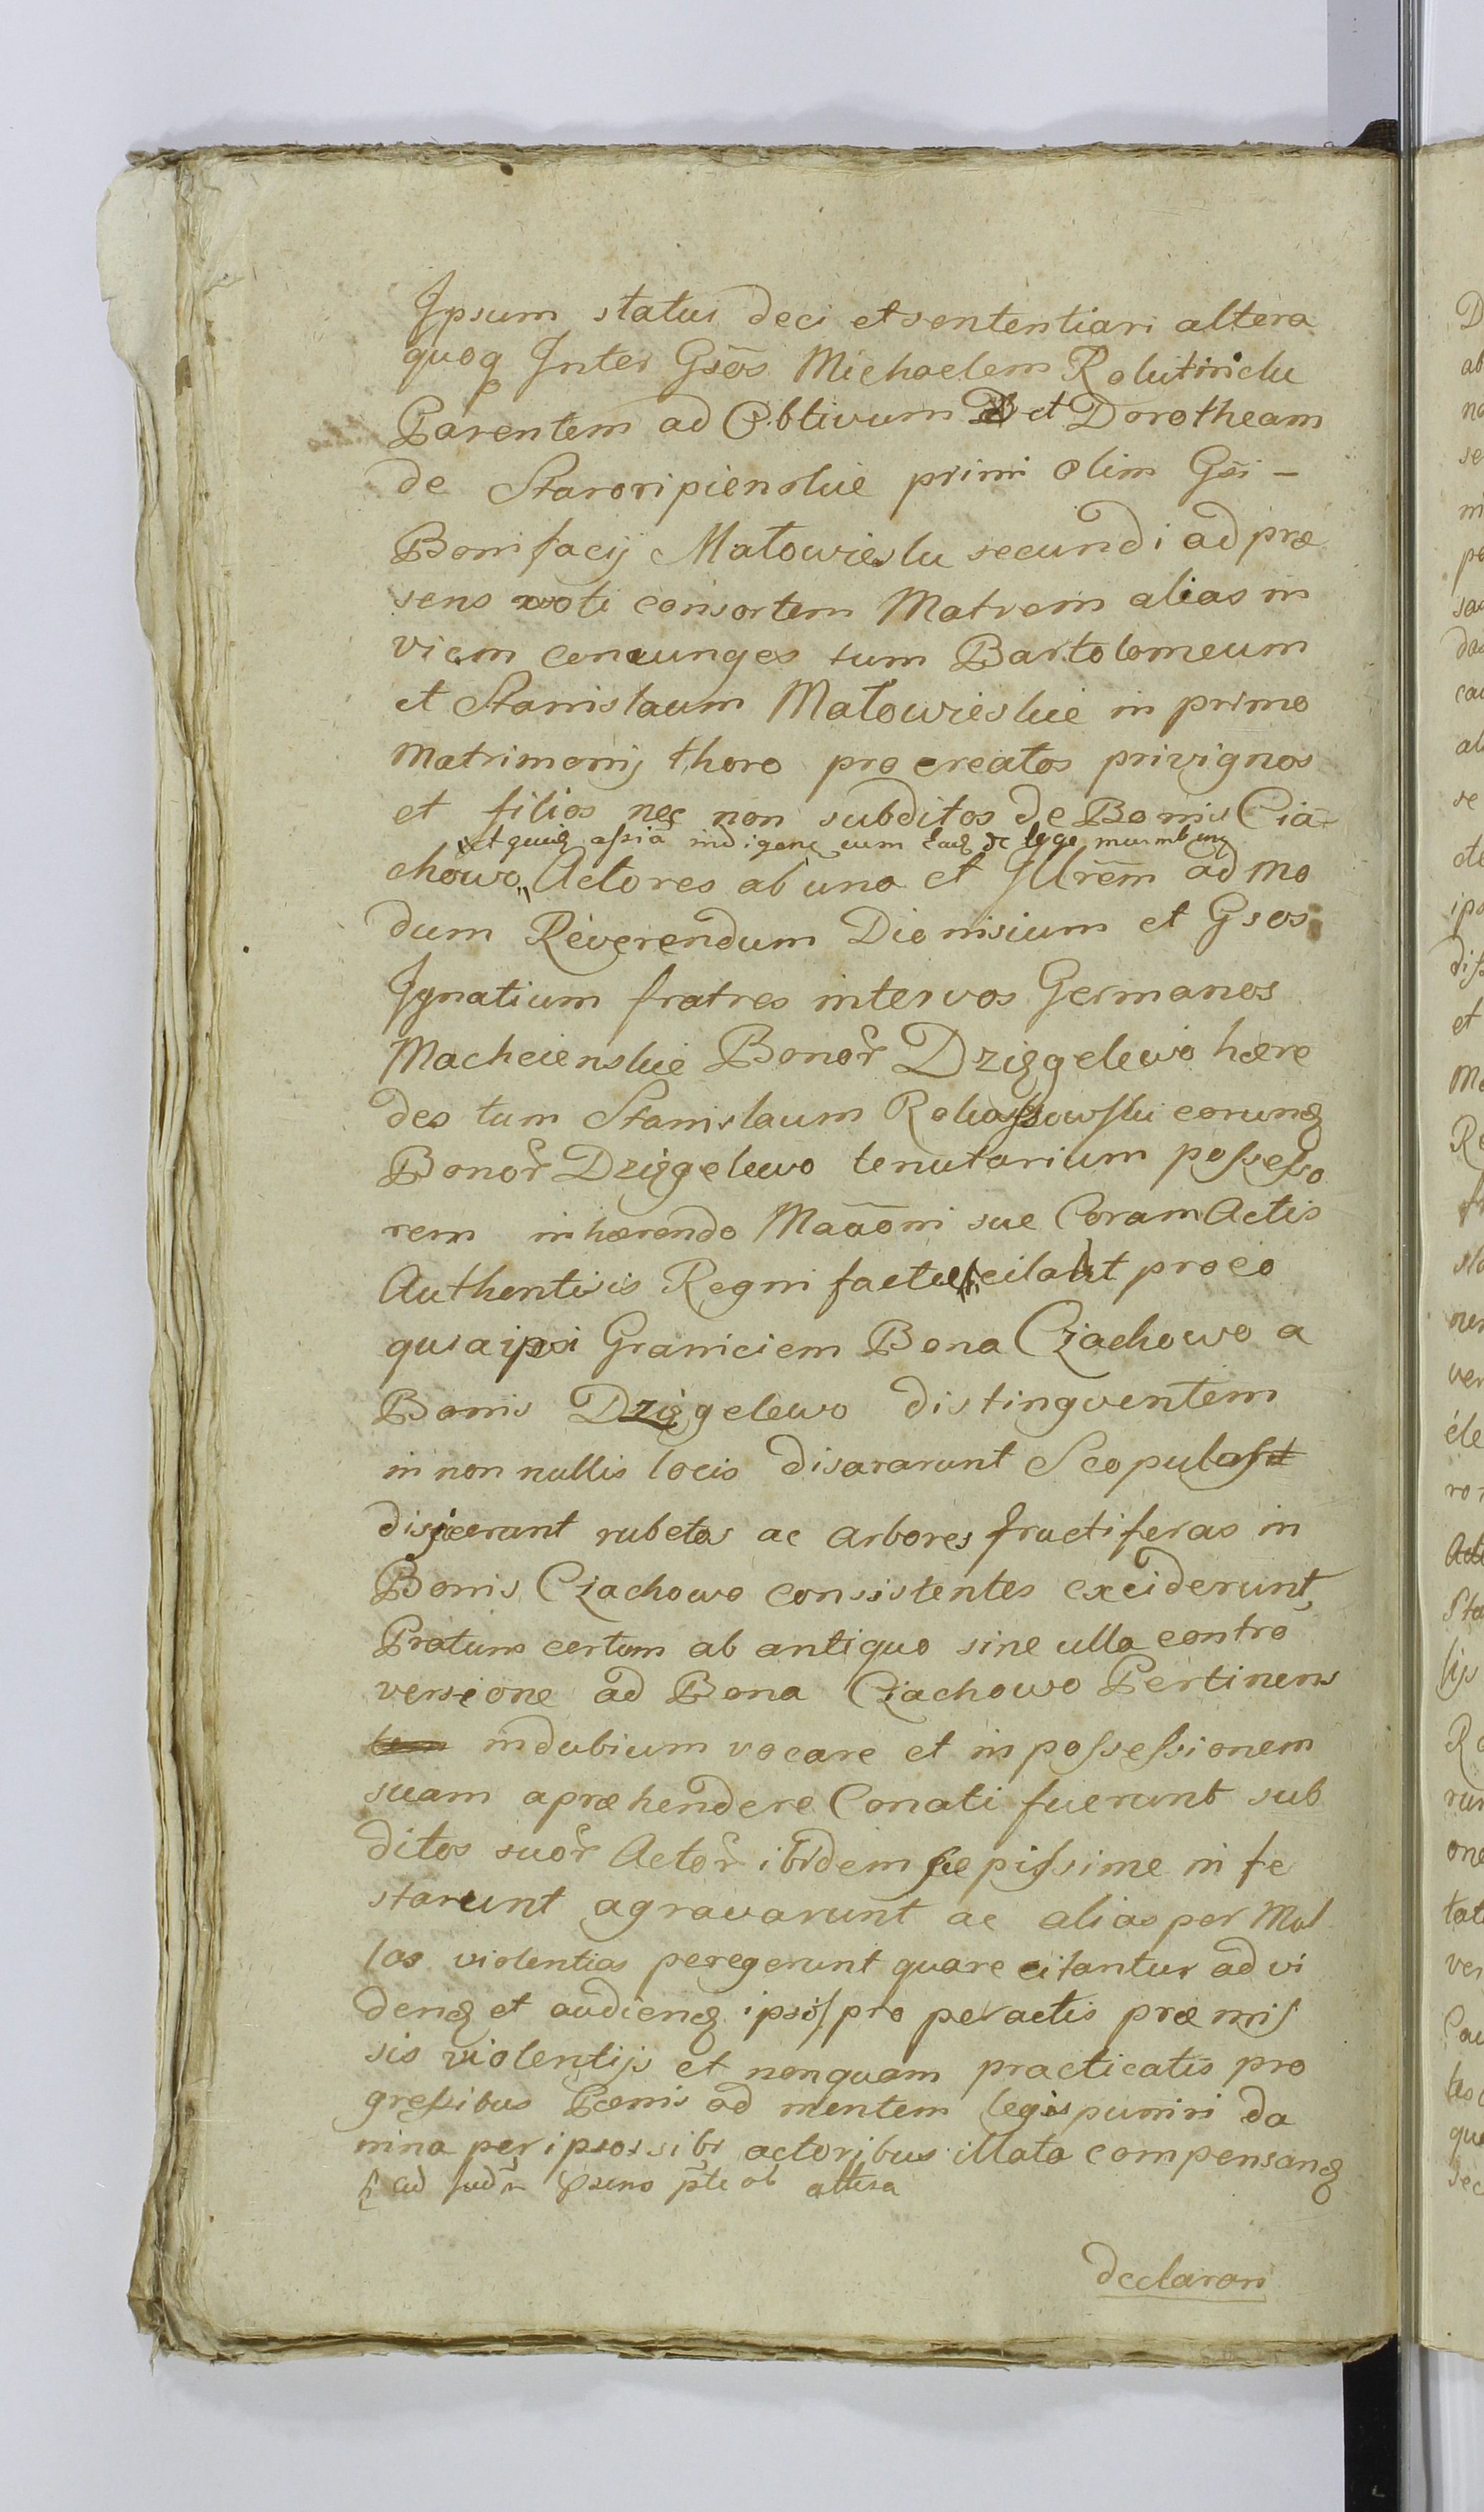 Ipsum statui deci et sententiari altera
quoq Inter Gsõs Michaelem
Parentem ad Oblivum et Dorotheam
de Staroripienskie primi olim Gsi -
Bonifacij Małowieski secundi ad præ
sens voti consortem Matrem alias in
vicem coniunges tum Bartolomeum
et Stanislaum Małowieskie in primo
Matrimonij thoro procreatos privignos
et filios nec non subditos de Bonis Cia
et quivis assia indigene cum de lege
chowo Actores ab una et Illrem admo
dum Reverendum Dionisium et Gsos
Ignatium fratres intervos Germanos
Macheienskie Bonor Dzięgelewo hære
des tum Stanislaum eorunq
Bonor Dzięgelewo tenutarium possesso
rem inhærendo Maãoni sue Coram Actis
Authenticis Regni factæ citant pro eo
quia ipsi Graniciem Bona Czachowo a
Bonis Dzięgelewo distingventem
in non nullis locis disararunt Scopulos
disjecerunt rubetas ac arbores fructiferas in
Bonis Czachowo consistentes exciderunt,
Pratum certum ab antiquo sine ulla contro
versione ad Bona Czachowo Pertinens
in dubium vocare et in possessionem
suam apræhendere Conati fuerunt sub
ditos suor Actor ibidem sæpissime infe
starunt agravarunt ac alias per Mul
las violentias peregerunt quare citantur ad vi
denq et audienq ipsos pro peractis præmis
sis violentijs et nonquam practicatis pro
gressibus Pænis ad mentem legis puniri da
mna per ipsos sibi actoribus illata compensanq
ad pte ab altera
declarari